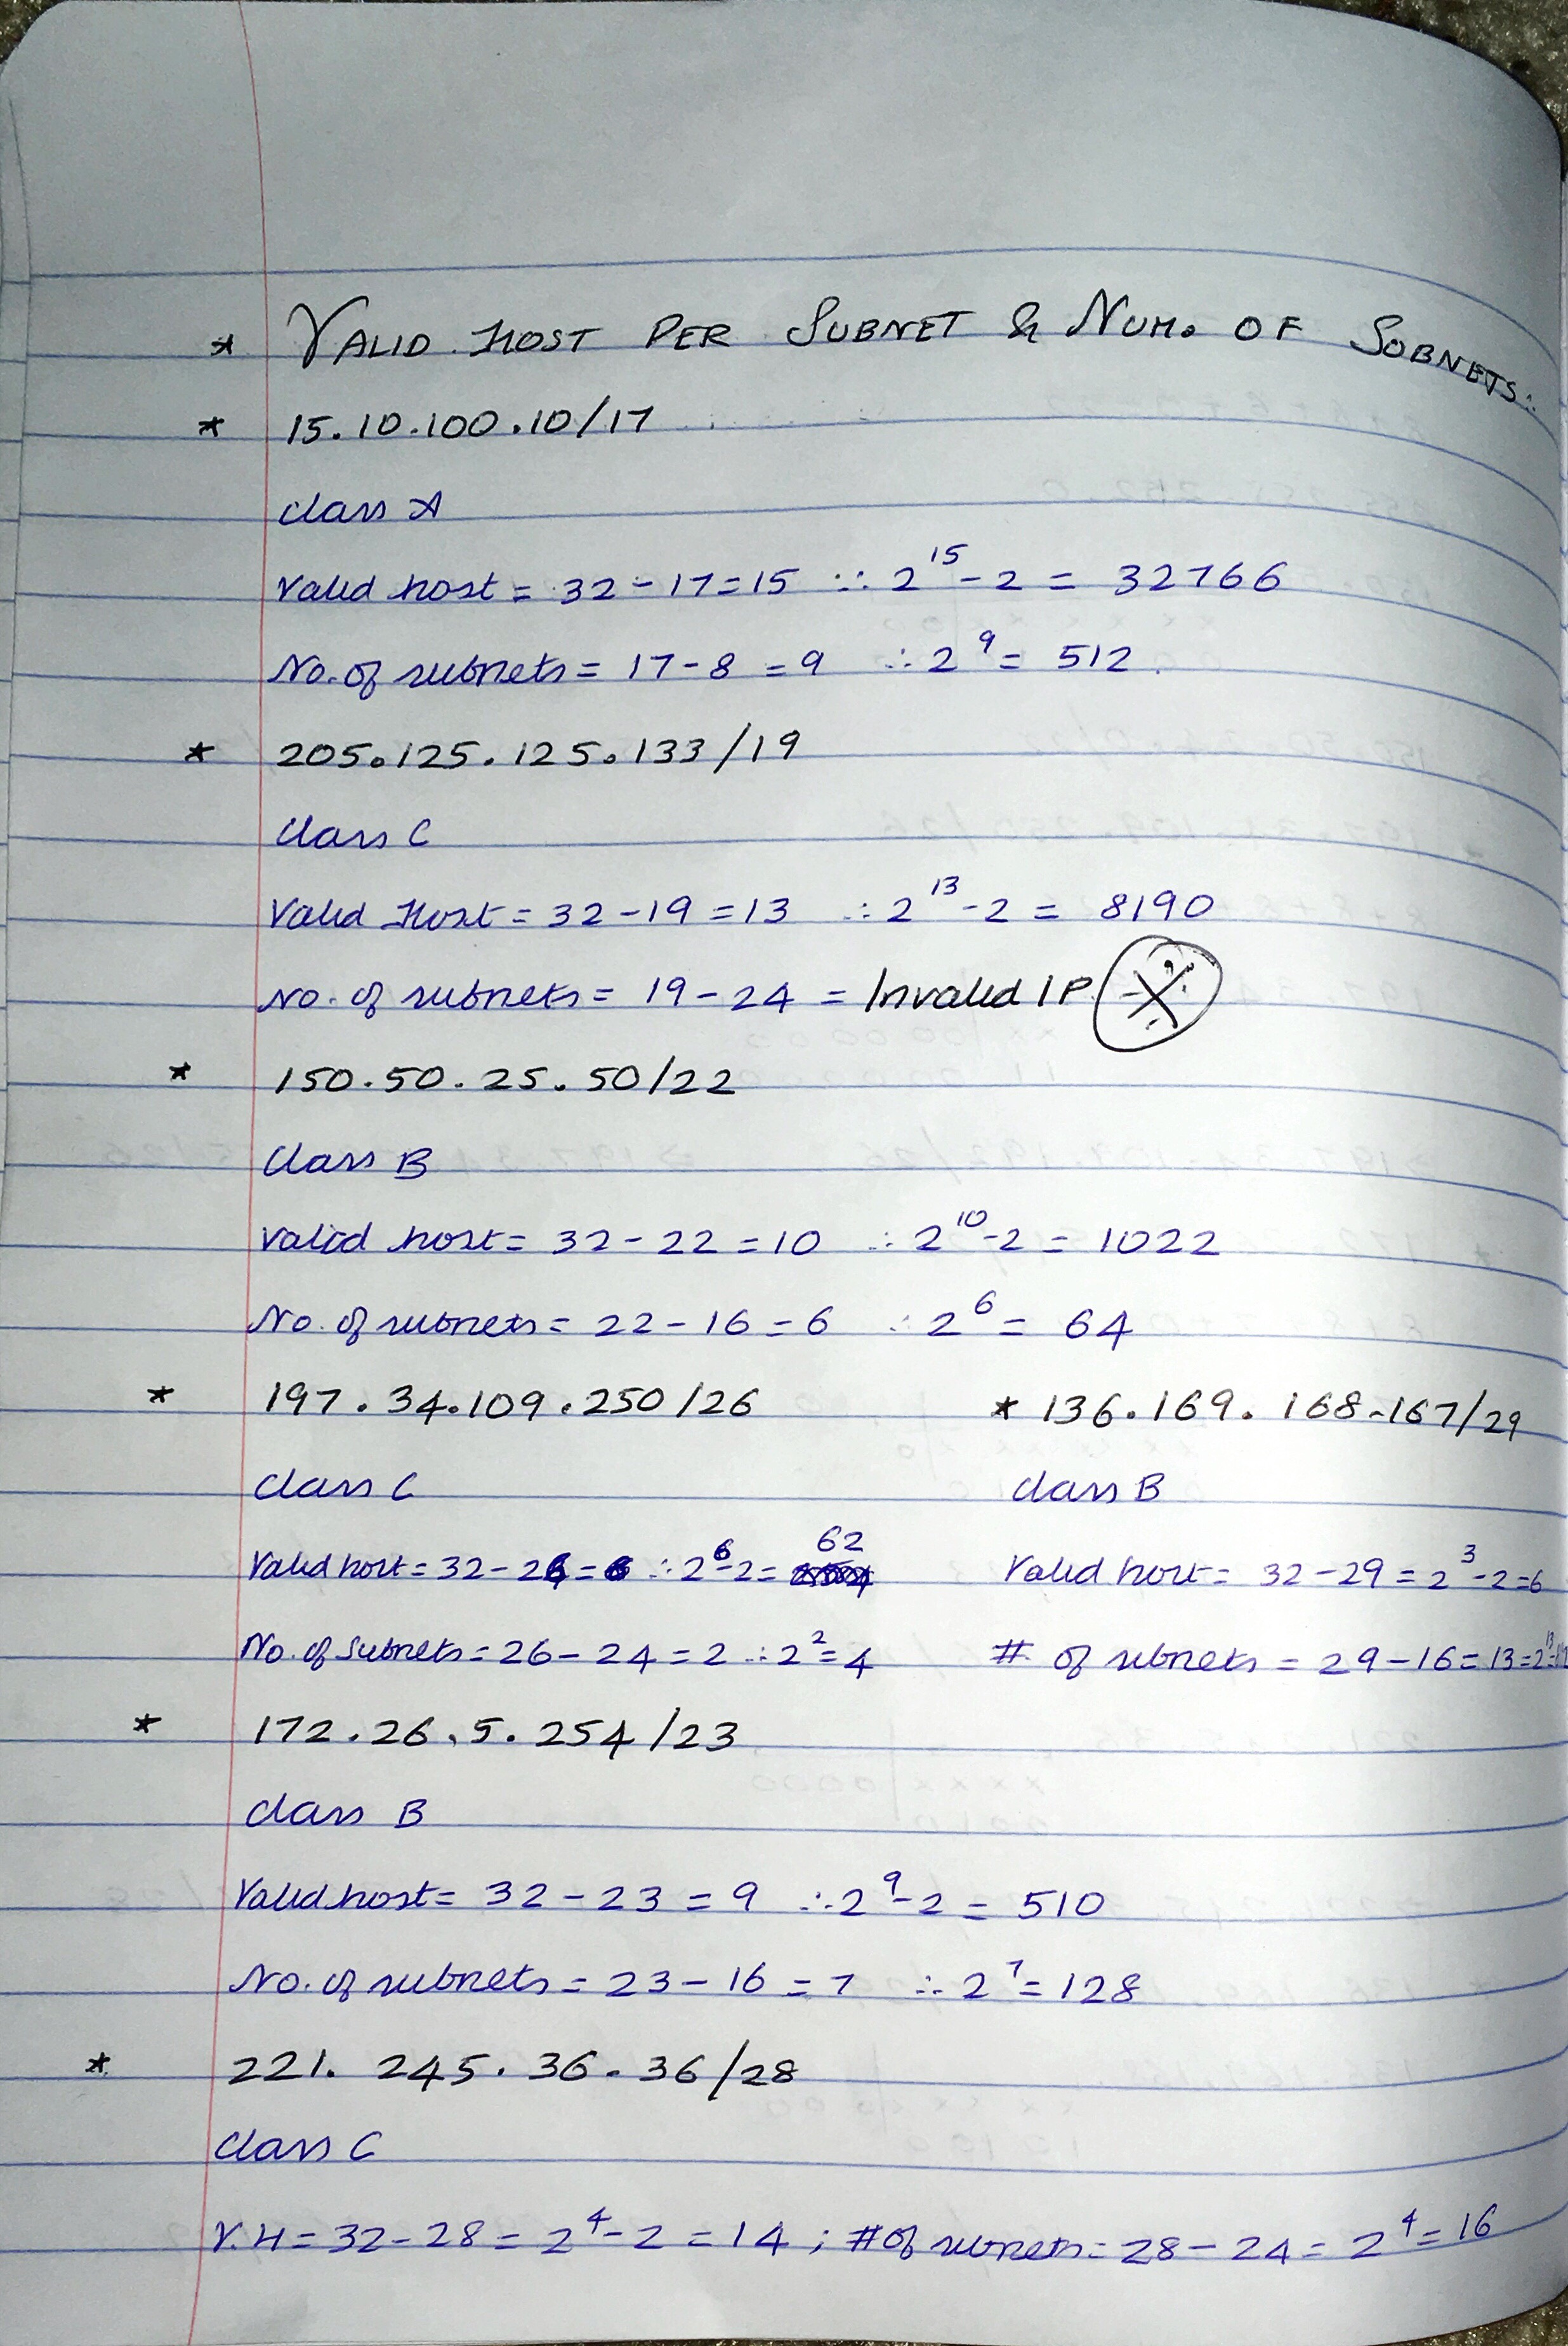 * VALID HOST PER SUBNET & NUM. OF SUBNETS:
* 15.10.100.10/17
class A
Valid host = 32-17=15 ∴ 2^15-2 = 32766
No. of subnets = 17-8 = 9 ∴ 2^9 = 512
* 205.125.125.133/19
class C
Valid Host = 32-19 = 13 ∴ 2^13-2 = 8190
No. of subnets = 19-24 = Invalid IP
* 150.50.25.50/22
class B
Valid host = 32-22 = 10 ∴ 2^10-2 = 1022
No. of subnets = 22-16 = 6 ∴ 2^6 = 64
* 197.34.109.250/26
class C
Valid host = 32-26 = 6 ∴ 2^6-2 = 62
No. of Subnets = 26-24 = 2 ∴ 2^2 = 4
* 136.169.168.167/29
class B
Valid host = 32-29 = 2^3-2 = 6
# of subnets = 29-16 = 13 = 2^13 =
* 172.26.5.254/23
class B
Valid host = 32-23 = 9 ∴ 2^9-2 = 510
No. of subnets = 23-16 = 7 ∴ 2^7 = 128
* 221.245.36.36/28
class C
V.H = 32-28 = 2^4-2 = 14 ; # of subnets = 28-24 = 2^4 = 16